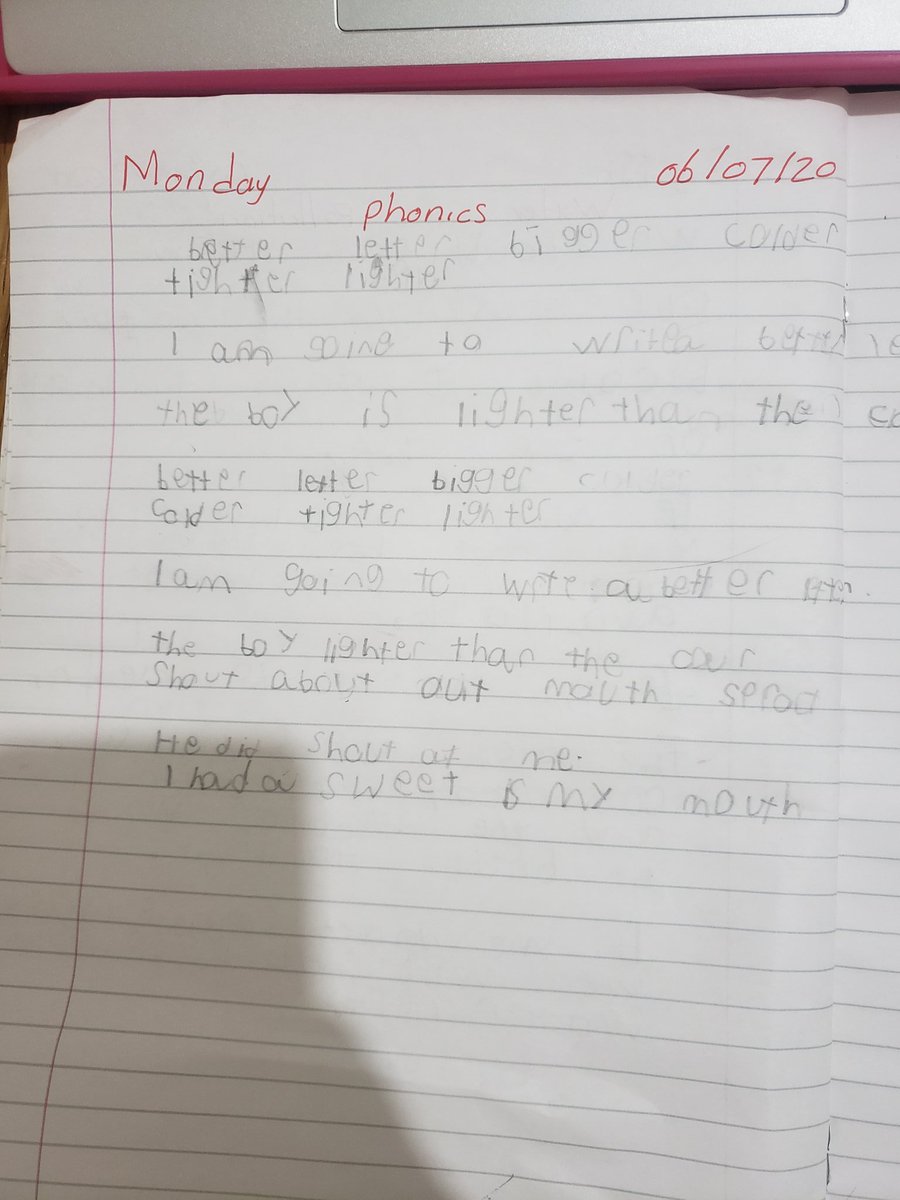 Monday 06/07/20
phonics
better letter bigger colder
tighter lighter
I am going to better le
the boy is lighter than the
better letter bigger colder
colder tighter lighter
I am going to write a better
the boy lighter than the
Shout about out mouth
He did Shout at me.
I had a sweet is my mouth